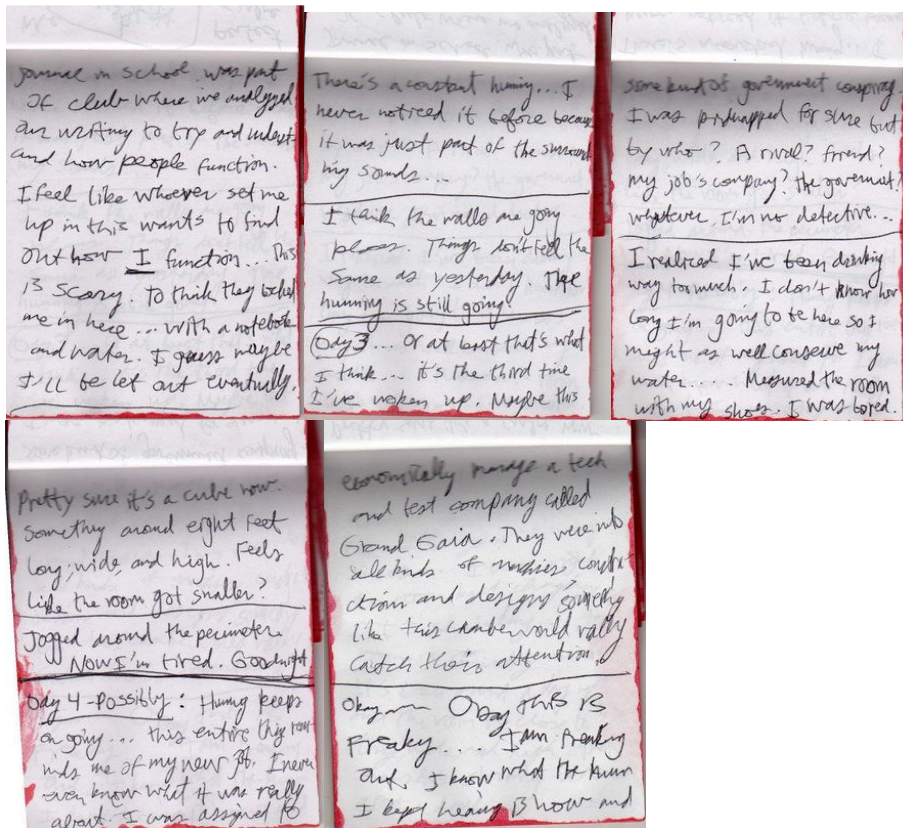 journal in school. was part
of club where we analyzed
our writing to try and underst-
and how people function.
I feel like whoever set me
up in this wants to find
out how I function... This
is scary. To think they locked
me in here... with a notebook
and water. I guess maybe
I'll be let out eventually.
There's a constant huming... I
never noticed it before because
it was just part of the surround
ing sounds...
I think the walls are going
places. Things don't feel the
same as yesterday. The
humming is still going.
Day 3... or at least that's what
I think... it's the third time
I've woken up. Maybe this
some kind of government conspiracy.
I was kidnapped for sure but
by who? A rival? friend?
my job's company? the government?
whatever. I'm no detective...
I realized I've been drinking
way too much. I don't know how
long I'm going to be here so I
might as well conserve my
water..... Measured the room
with my shoes. I was bored.
Pretty sure it's a cube now.
Something around eight feet
long, wide, and high. Feels
like the room got smaller?
Jogged around the perimeter.
Now I'm tired. Goodnight
Day 4 - Possibly: Huming keeps
on going... this entire thing rem-
inds me of my new job. I never
even know what it was really
about. I was assigned to
economically manage a tech
and test company called
Grand Gaia. They were into
all kinds of machines, constru-
ctions and designs. something
like this chamber would really
catch their attention.
Okay... Okay this is
freaky.... I am freaking
out. I know what the hum
I kept hearing is now and